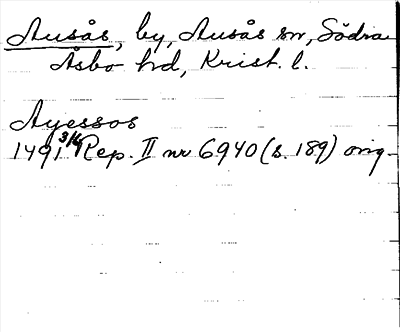 Ausås, by, Ausås sn, Södra
Åsbo hd, Krist. l.
Ayessos
1491 3/6 Rep. II nr 6940 (s. 189) orig.